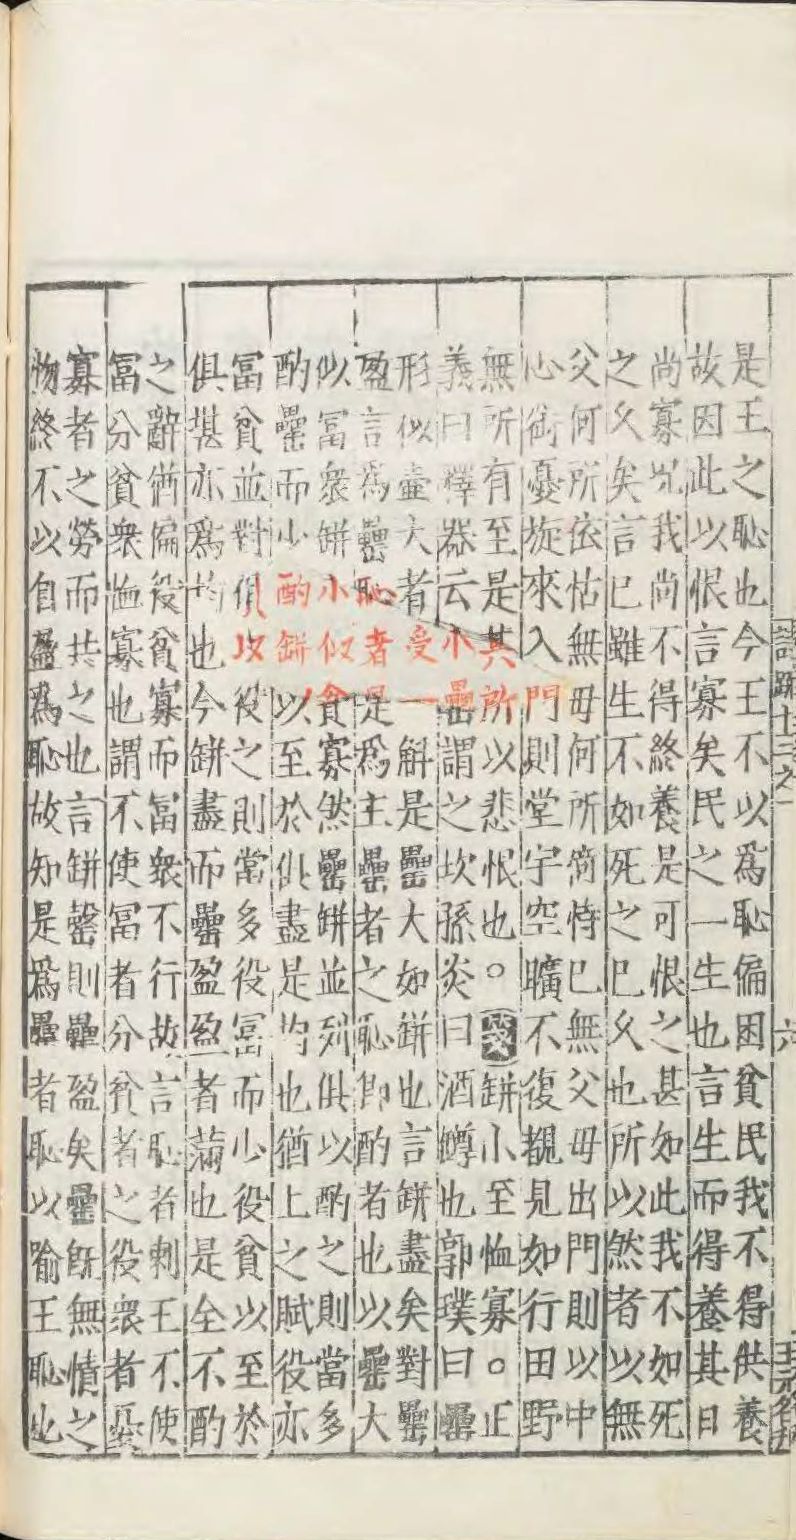 詩疏十三之一　六
是王之恥也今王不以爲恥偏困貧民我不得供養
故因此以恨言寡矣民之一生也言生而得養其日
尚寡况我尚不得終養是可恨之甚如此我不如死
之久矣言已雖生不如死之已久也所以然者以無
父何所依怙無母何所倚恃已無父母出門則以中
心銜憂旋來入門則堂宇空曠不復覩見如行田野
無所有至是其所以悲恨也。傳缾小至恤寡。正
義曰釋器云小罍謂之坎孫炎曰酒罇也郭璞曰罍
形似壺大者受一斛是罍大如缾也言缾盡矣對罍
盈言爲罍恥者是爲主罍者之恥卽酌者也以罍大
似冨衆缾小似貧寡然罍缾並列俱以酌之則當多
酌罍而少酌缾以至於俱盡是均也猶上之賦役亦
冨貧並對俱役之則當多役冨而少役貧以至於
俱堪亦爲均也今缾盡而罍盈盈者滿也是全不酌
之辭猶偏役貧寡而冨衆不行故言恥者刺王不使
冨分貧衆恤寡也謂不使冨者分貧者之役衆者憂
寡者之勞而共之也言缾罄則罍盈矣罍旣無情之
物終不以自盈爲恥故知是爲罍者恥以喻王恥也